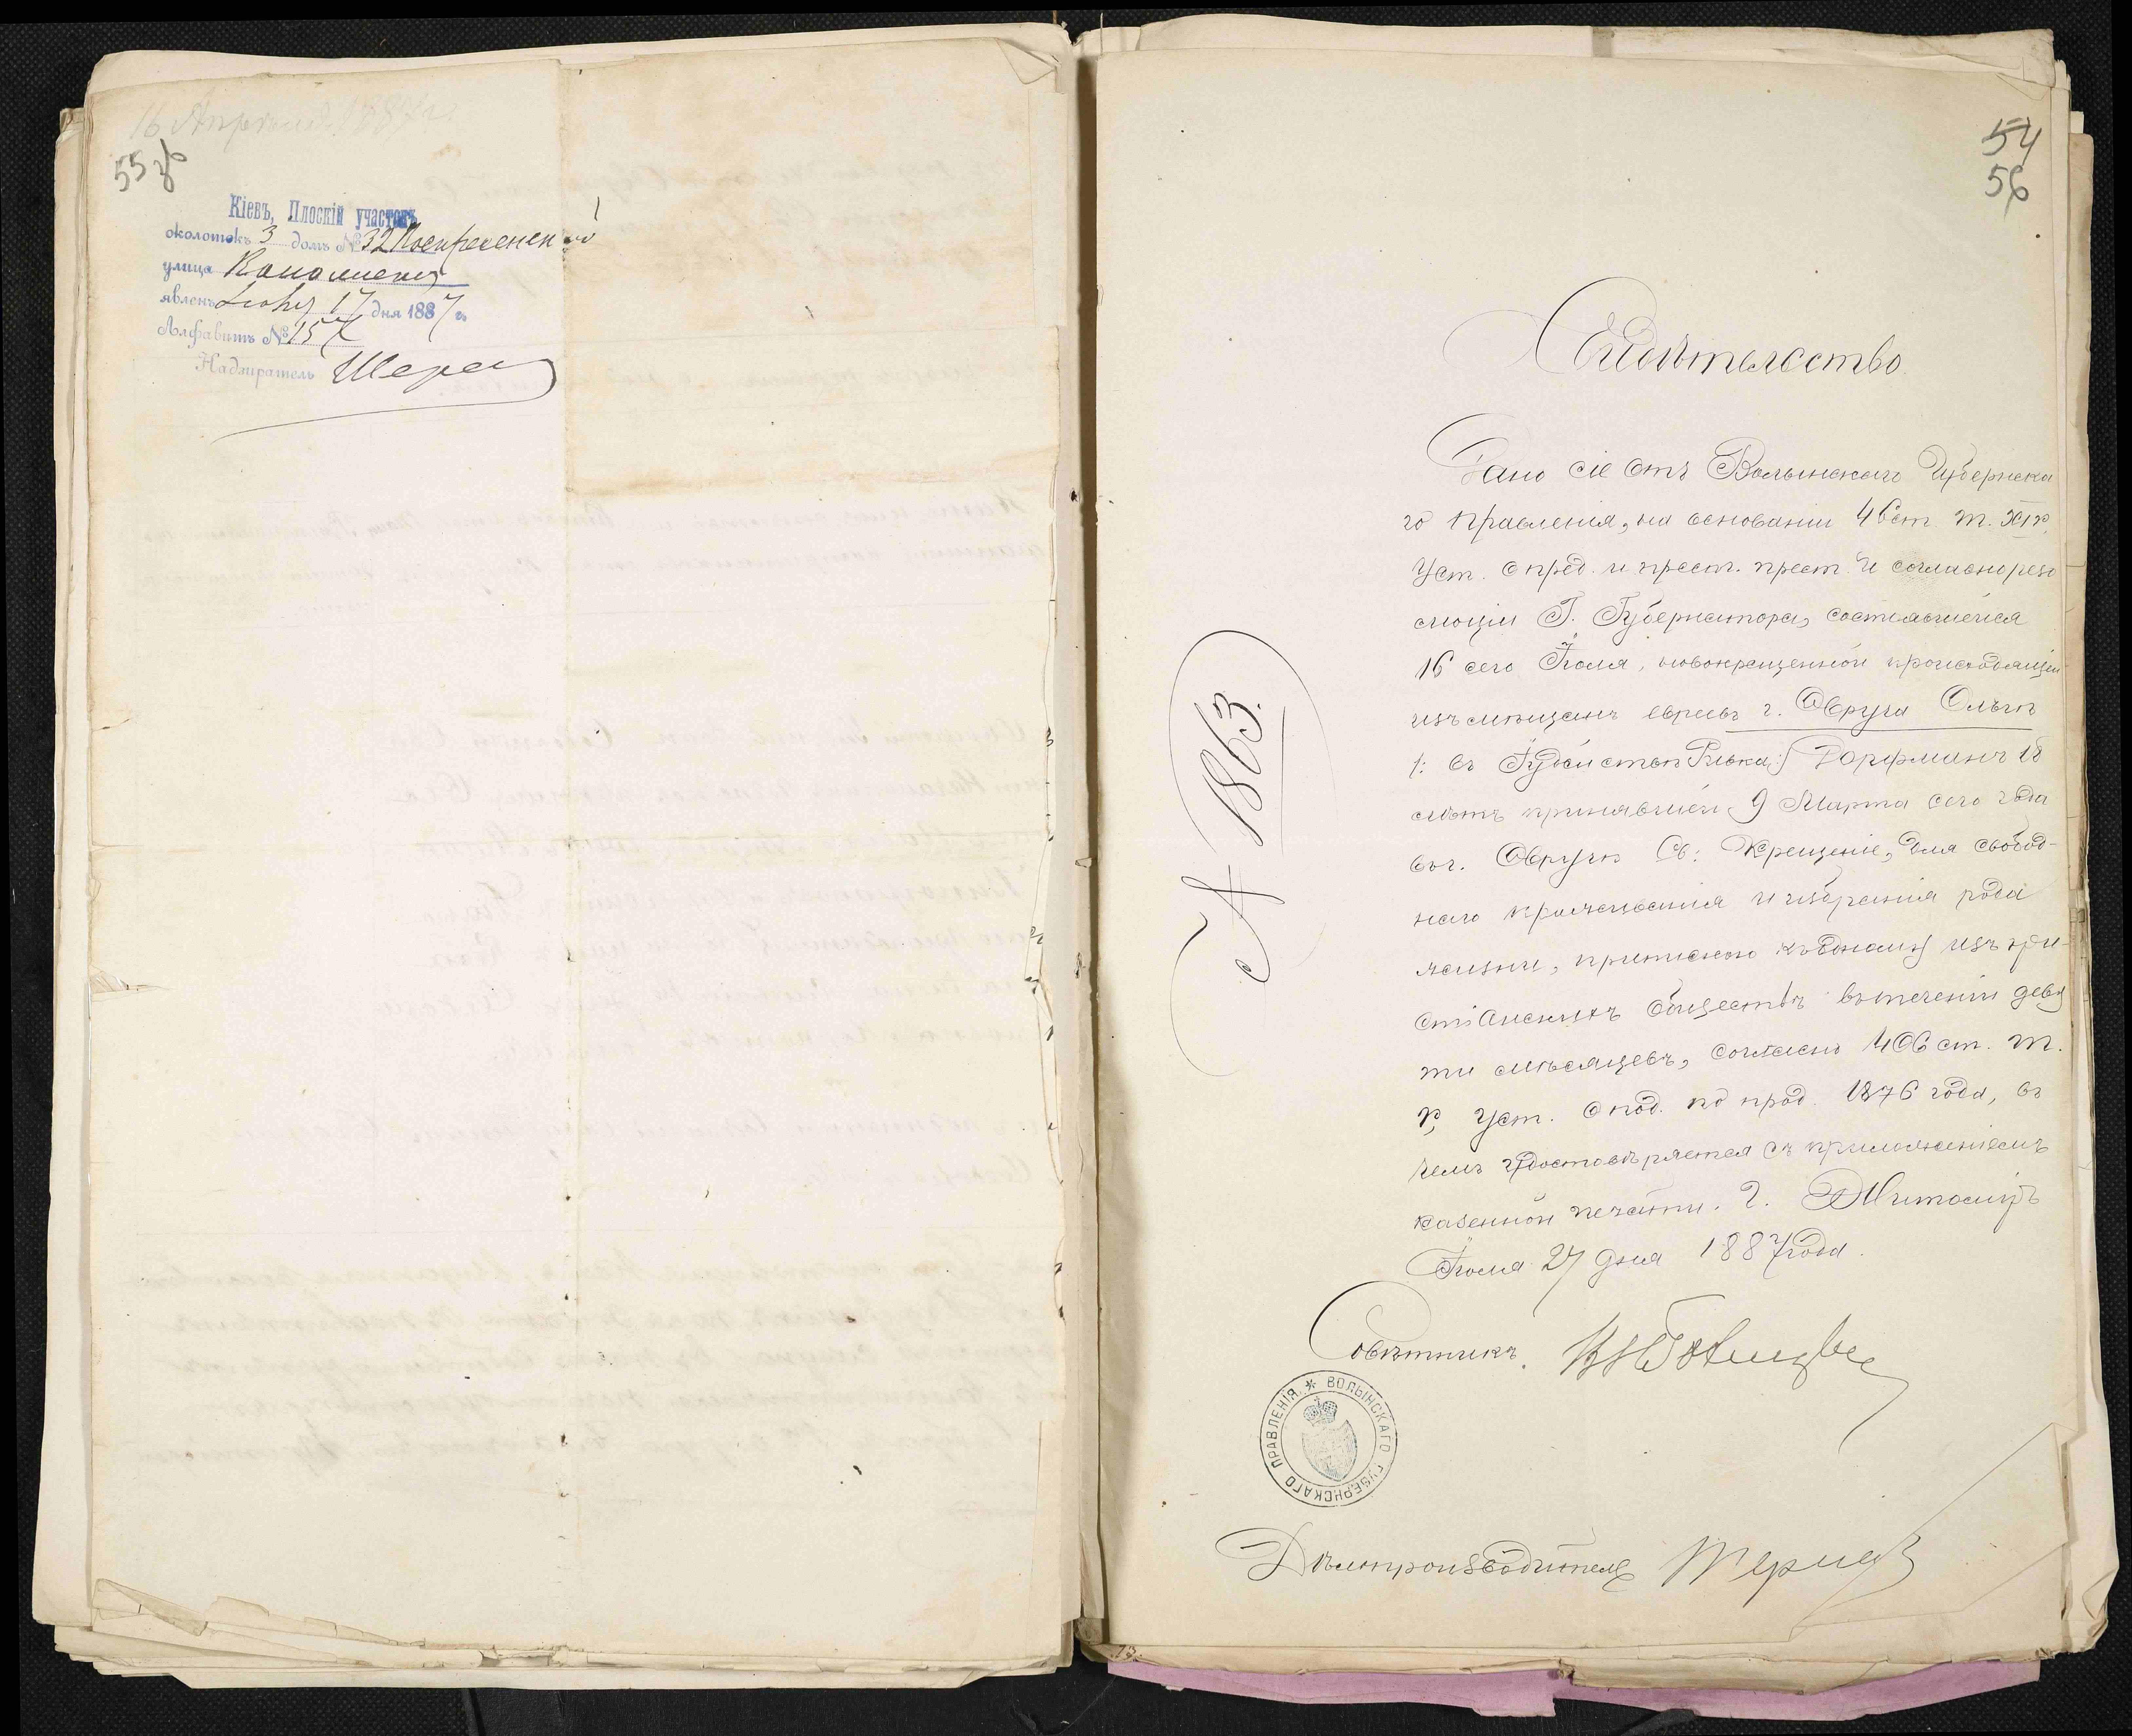 16 Апрѣля 1887 г.
55 об
Кіевъ, Плоскій участокъ
околотокъ 3 домъ № 32 Воскресенской
улица
явленъ 17 дня 1887 г.
Алфавитъ № 157
Надзиратель
54
56
Свидѣтельство.
Дано сіе отъ Волынскаго Губернска
го Правленія, на основаніи 46 ст. т. XIV.
Уст. о пред. и прест. прест. и согласно резо
люціи Г. Губернатора, состоявшейся
16 сего Іюля, новокрещенной происходящей
изъ мѣщанъ евреевъ г. Овруча Ольгѣ
/: въ Іудействѣ Ривка :/ Дорфманъ 18
лѣтъ принявшей 9 Марта сего года
въ г. Овручѣ Св: Крещеніе, для свобод-
наго проживанія и избранія рода
жизни, припискою къ одному изъ хри-
стіанскихъ обществъ въ теченіи девя
ти мѣсяцевъ, согласно 406 ст. т.
V, Уст. о под. по прод. 1876 года, въ
чемъ удостовѣряется съ приложеніемъ
казенной печати. г. Житоміръ
Іюля 27 дня 1887 года.
Совѣтникъ.
ВОЛЫНСКАГО ГУБЕРНСКАГО ПРАВЛЕНІЯ
Дѣлопроизводитель
№ 1863.